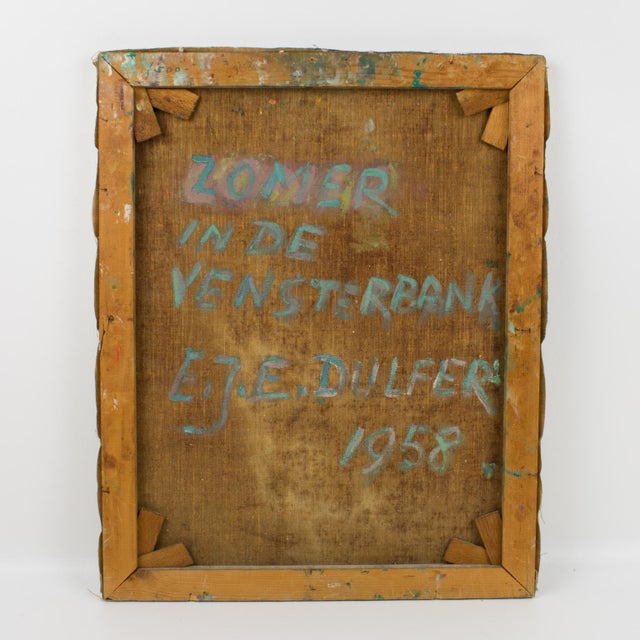 ZOMER
IN DE
VENSTERBANK
E.J.E. DULFER
1958